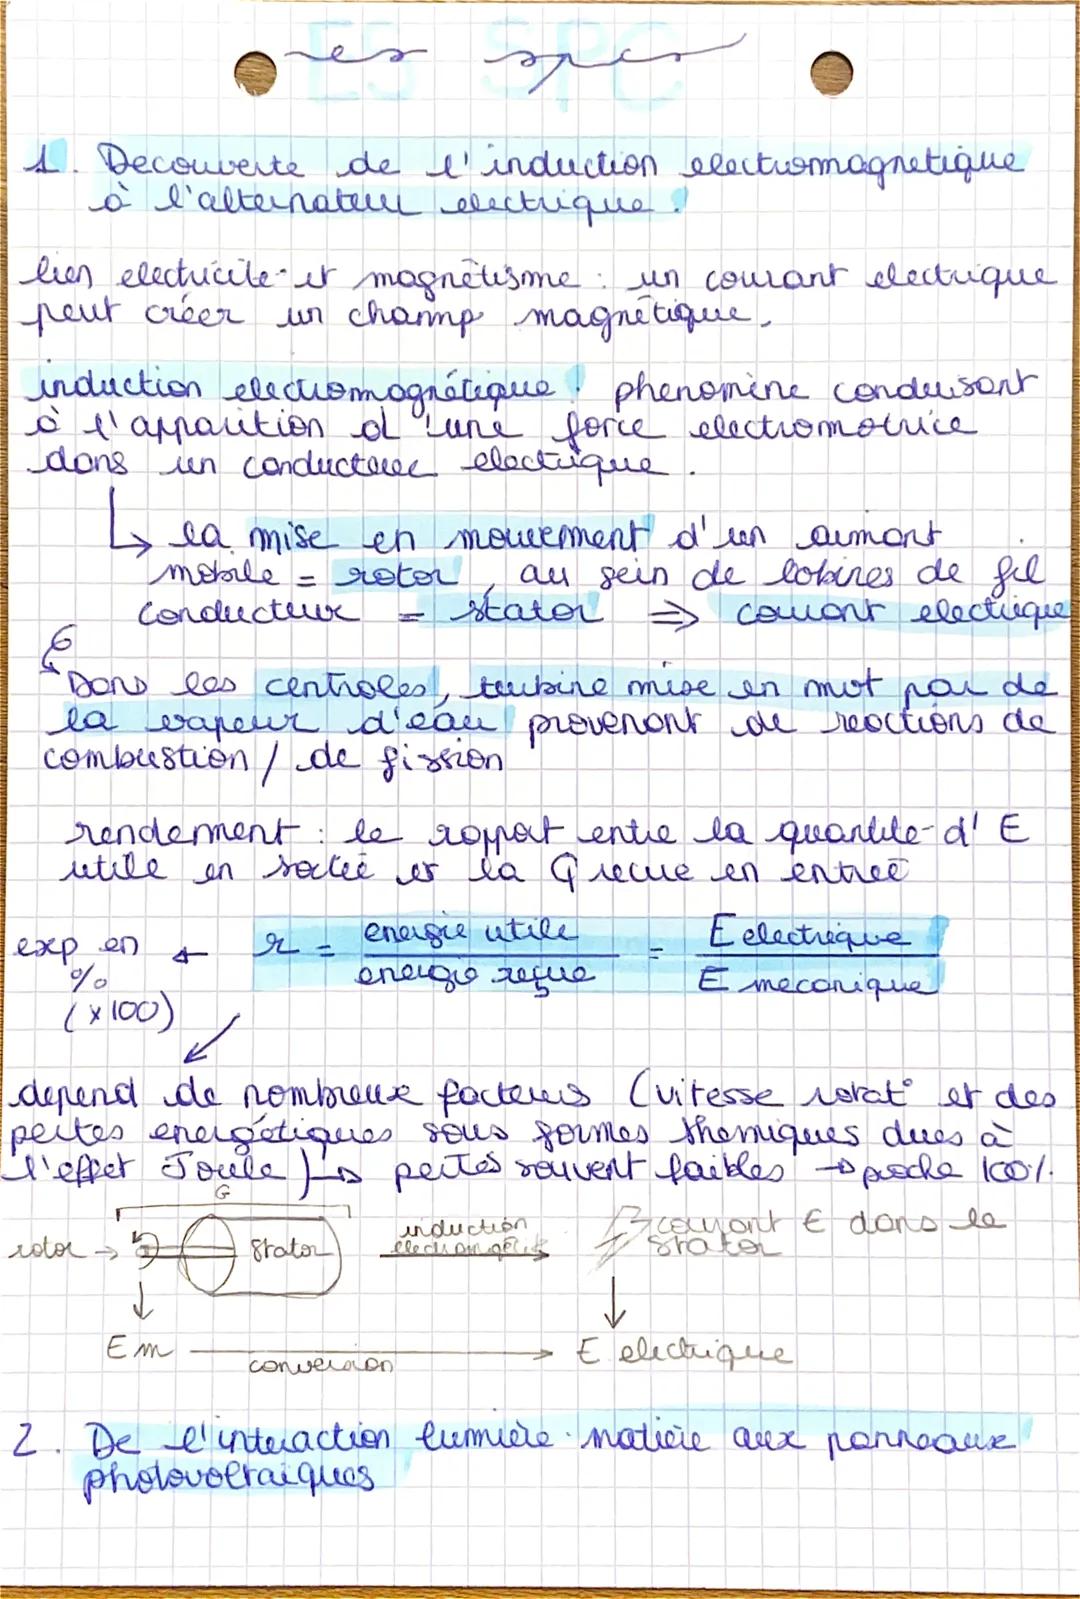 es spc
ES SPC
1. Decouverte de l'induction electromagnetique
à l'alternateur electrique.
lien electricite et magnétisme : un courant electrique
peut créer un champ magnétique.
induction electromagnétique : phenomène conduisant
à l'apparition d'une force electromotrice
dans un conducteur electrique.
↳ la mise en mouvement d'un aimant
mobile = rotor, au sein de bobines de fil
conducteur = stator ⇒ courant electrique
Dans les centrales, turbine mise en mvt par de
la vapeur d'eau provenant de reactions de
combustion / de fission
rendement : le rapport entre la quantite d'E
utile en sortie et la Q recue en entrée
exp en % (x100) ← r = energie utile / energie reçue = E electrique / E mecanique
depend de nombreux facteurs (vitesse rotat° et des
pertes energétiques sous formes thermiques dues à
l'effet Joule) → pertes souvent faibles → proche 100%.
G
rotor → stator induction → courant E dans le
stator
Em → E electrique
conversion
2. De l'interaction lumière-matière aux panneaux
photovoltaiques